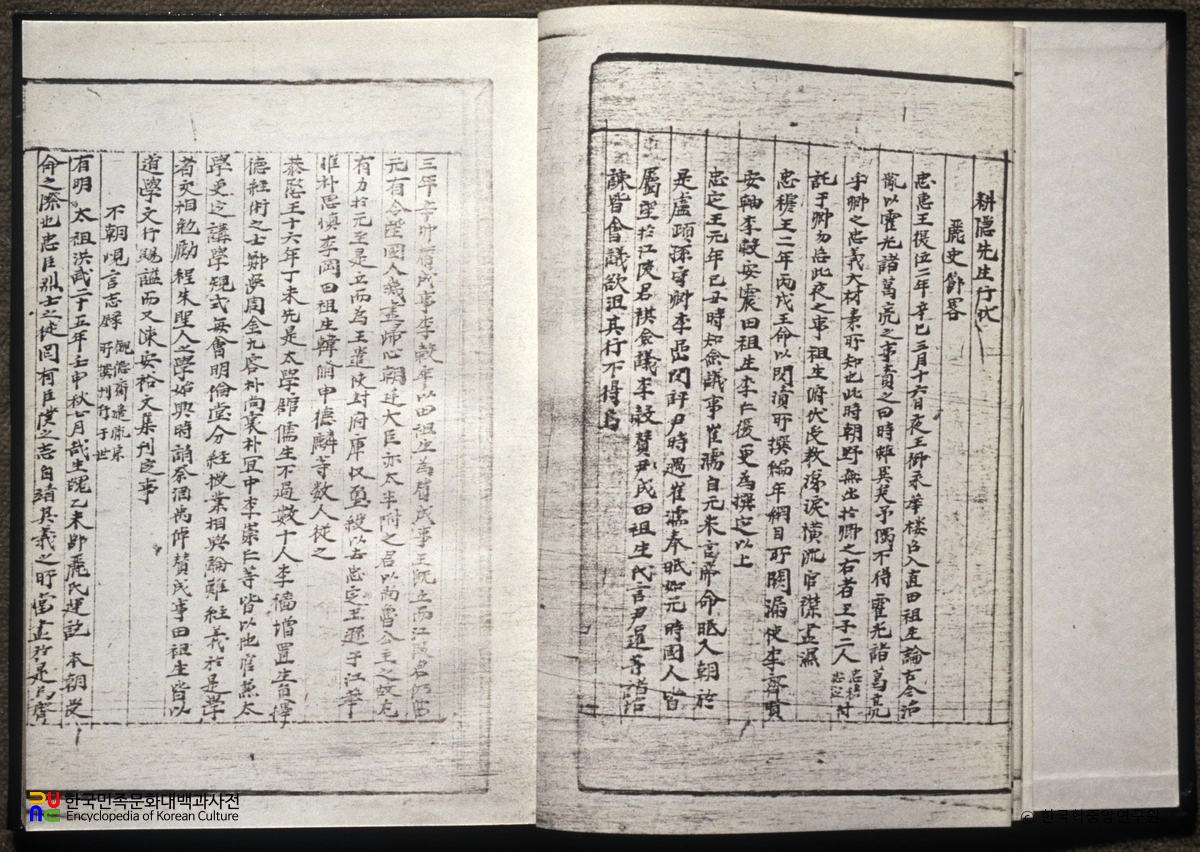 耕隱先生行狀
麗史節畧
忠惠王復位二年辛巳三月十六日夜王御承華樓召入直田祖生論古今治
亂以霍光諸葛亮之事責之曰時難異矣予獨不得霍光諸葛亮
乎卿之忠義大材素所知也此時朝野無出於卿之右者王子二人忠穆忠定付
託于卿勿忘此夜之事祖生俯伏受教涕淚橫流官襟盡濕
忠穆王二年丙戌王命以閔漬所撰編年綱目所闕漏使李齊賢
安軸李穀安震田祖生李仁復更爲撰定以上
忠定王元年己丑時知僉議事崔濡自元來言帝命眂入朝於
是盧頙孫守卿李君侅閔評尹時遇崔濡奉眂如元時國人皆
屬望於江陵君祺僉議李穀贊成田祖生代言尹澤等諸宰
諫皆會議欲沮其行不得焉
三年辛卯贊成事李穀卒以田祖生為贊成事王旣立而江陵君仍留
元有令望國人咸盡歸心朝廷大臣亦太半附之君以尚魯公主之故尤
有力於元至是立而爲王遣使封府庫収國璽以去忠定王遜于江華
惟朴思愼李岡田祖生韓脩申德麟等数人從之
恭愍王十六年丁未先是太學館儒生不過數十人李穡增置生員擇
德經術之士鄭夢周金九容朴尚衷朴宜中李崇仁等皆以他官兼太
學更定講學規式每會明倫堂分經授業相與論難經義於是學
者交相勉勵程朱聖人之學始興時請祭酒禹倬贊成事田祖生皆以
道學文行賜諡而又陳安裕文集刊定事
不朝峴言志錄 觀德齋遺胤
所撰刊行于世
有明 太祖洪武二十五年壬申秋七月哉生魄乙未卽麗氏運訖 本朝受
命之際也忠臣烈士之徒罔有臣僕之志自靖其義之所當盡於是爲齊
한국민족문화대백과사전
Encyclopedia of Korean Culture
© 한국학중앙연구원